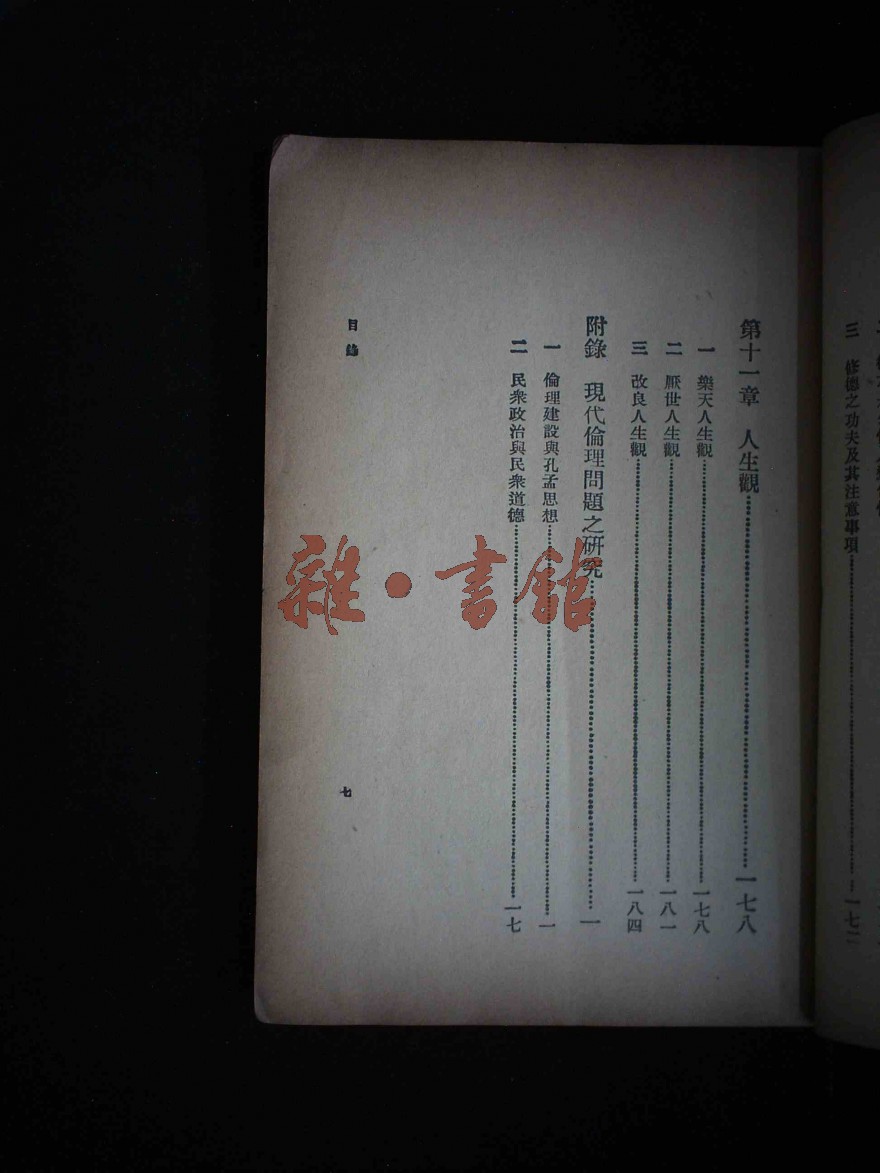 三 修德之功夫及其注意事項……一七二
第十一章 人生觀……一七八
一 樂天人生觀……一七八
二 厭世人生觀……一八一
三 改良人生觀……一八四
附錄 現代倫理問題之研究……一
一 倫理建設與孔孟思想……一
二 民衆政治與民衆道德……一七
目錄
七
雜·書館